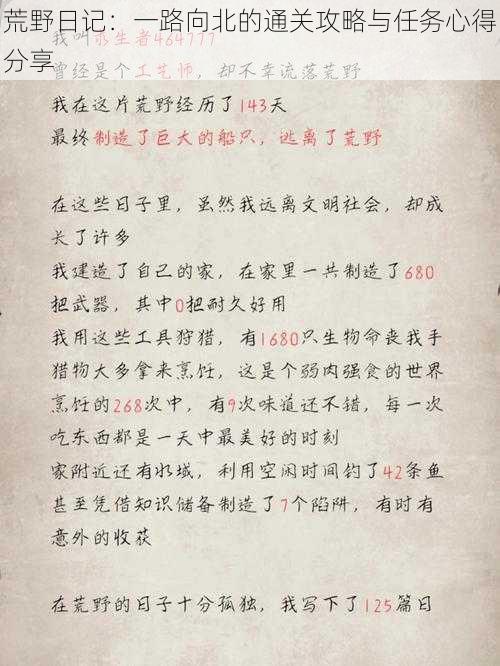 荒野日记：一路向北的通关攻略与任务心得
分享
我叫求生者464777
曾经是个工艺师，却不幸流落荒野
我在这片荒野经历了143天
最终制造了巨大的船只，逃离了荒野
在这些日子里，虽然我远离文明社会，却成
长了许多
我建造了自己的家，在家里一共制造了680
把武器，其中0把耐久好用
我用这些工具狩猎，有1680只生物命丧我手
猎物大多拿来烹饪，这是个弱肉强食的世界
烹饪的268次中，有9次味道还不错，每一次
吃东西都是一天中最美好的时刻
家附近还有水域，利用空闲时间钓了42条鱼
甚至凭借知识储备制造了7个陷阱，有时有
意外的收获
在荒野的日子十分孤独，我写下了125篇日